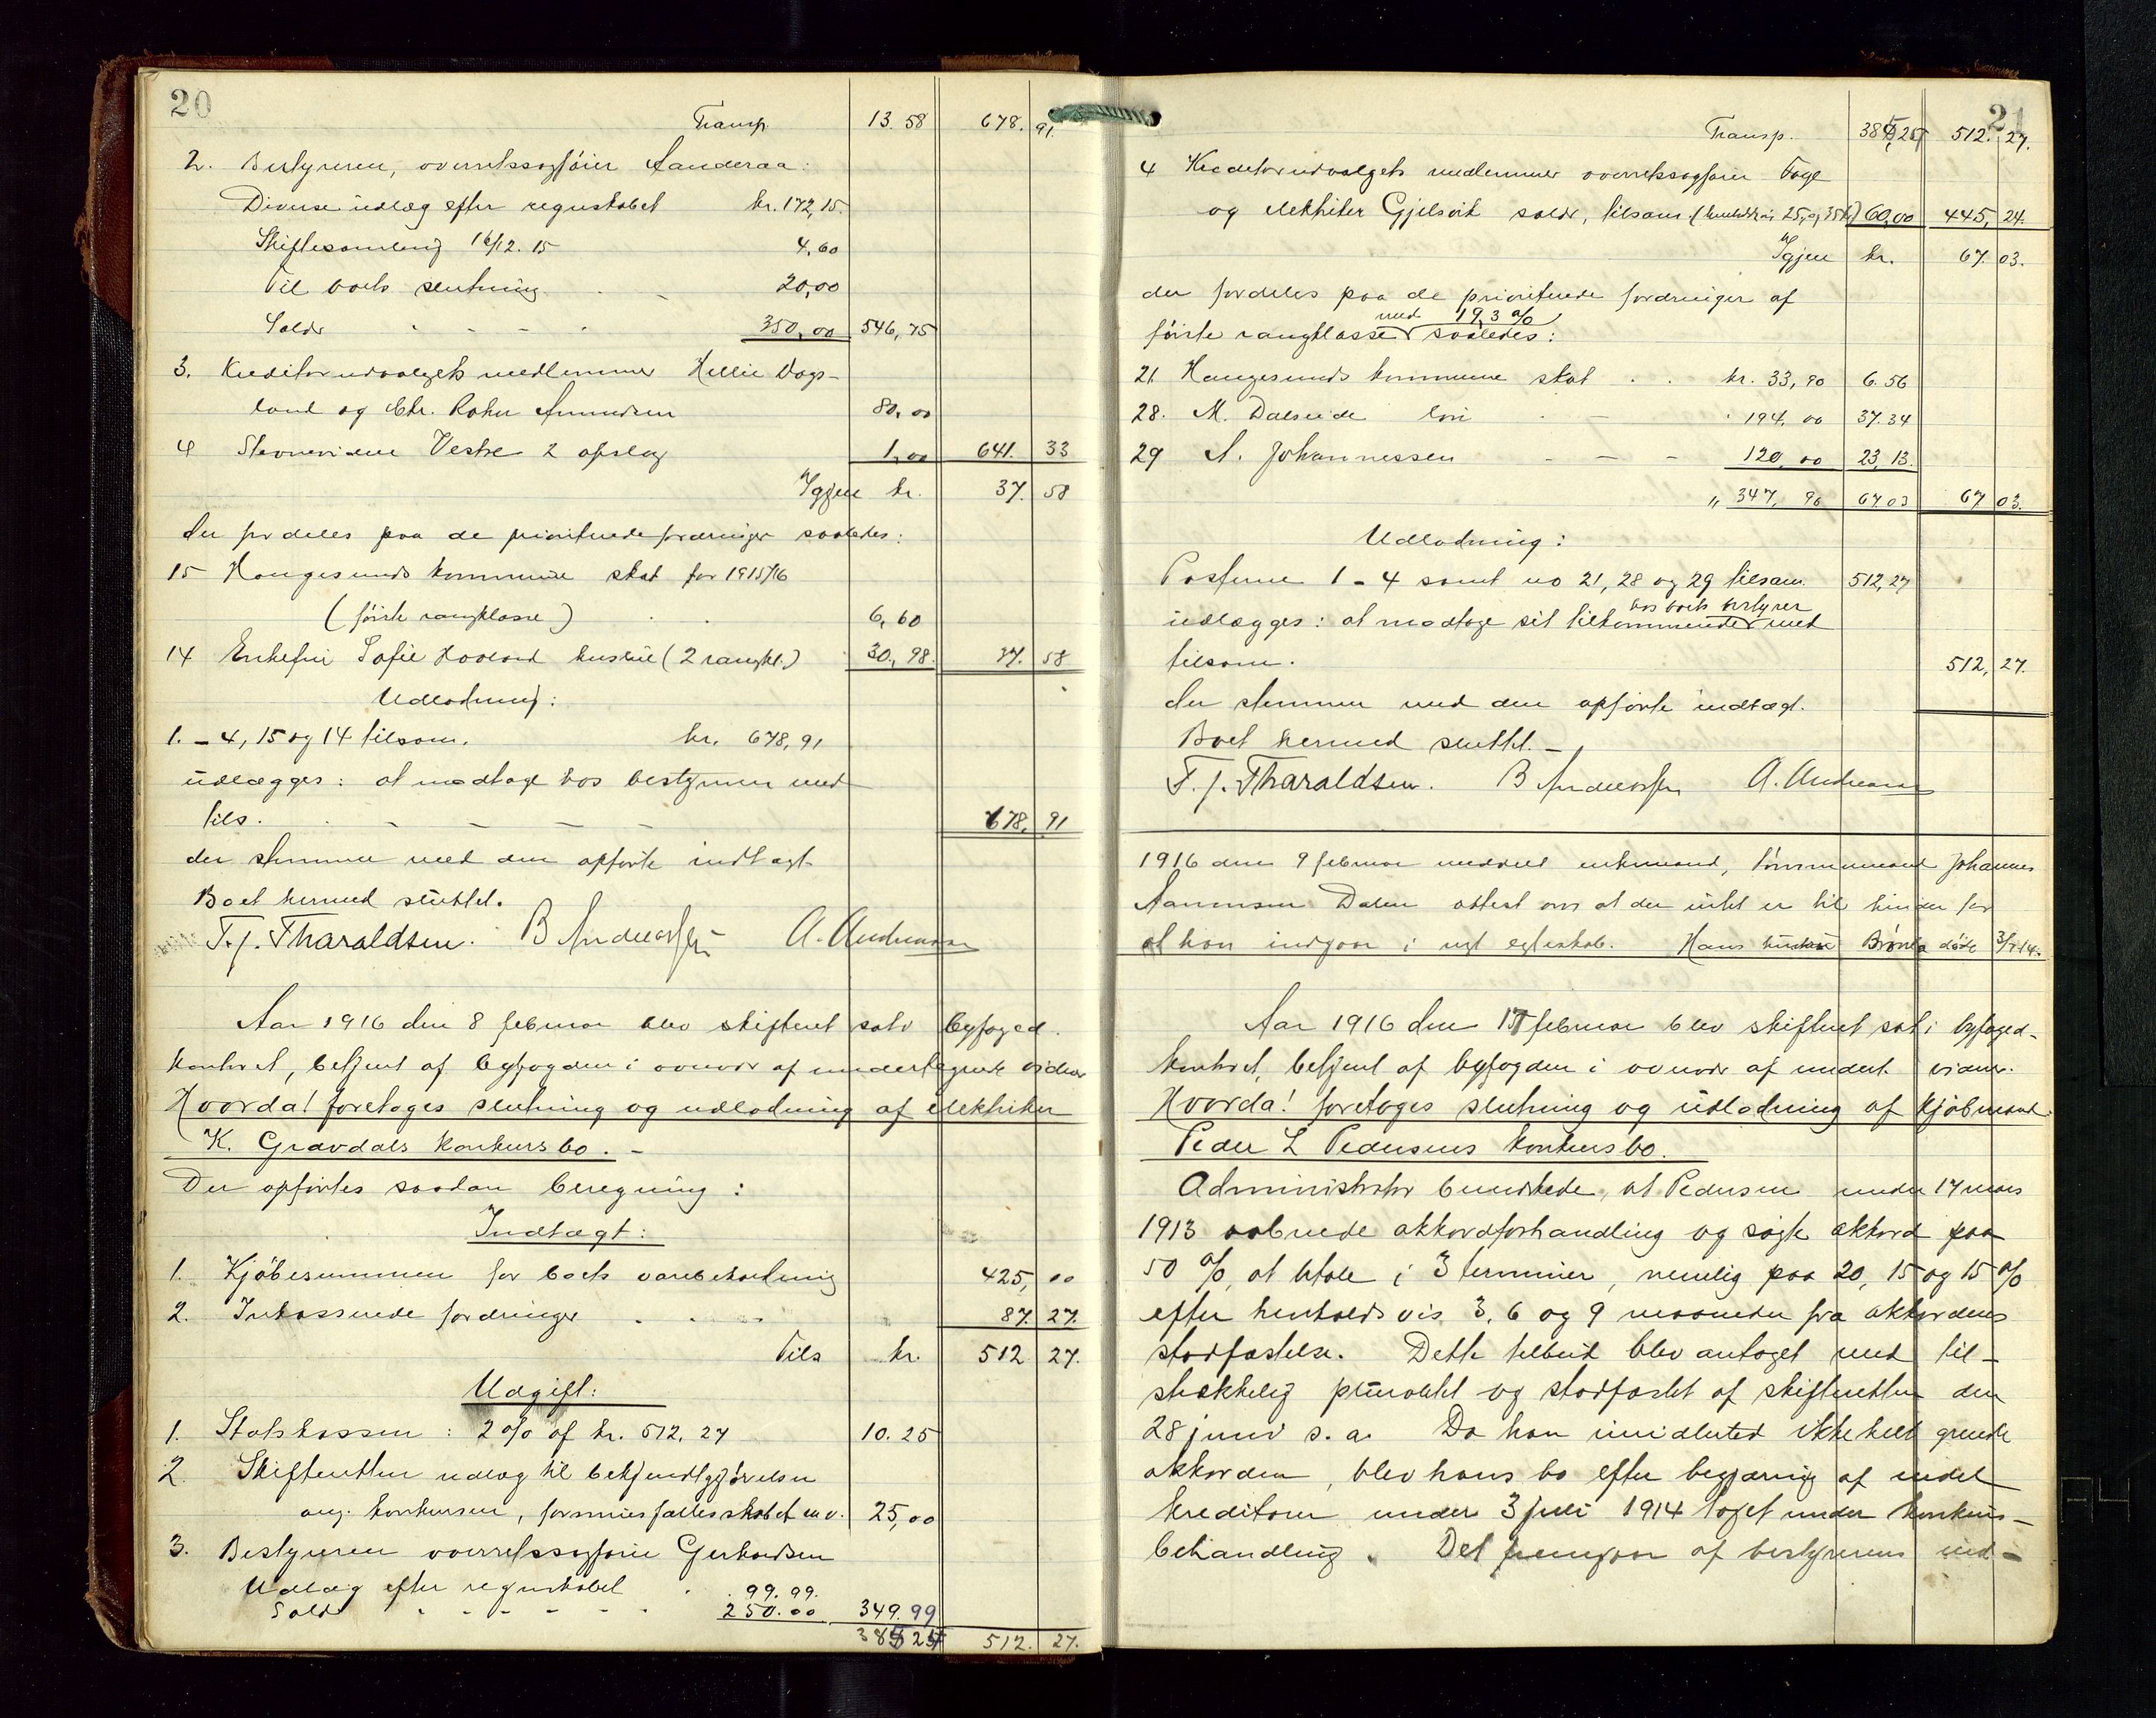 20
Transp. 13.58 678.91.
2. Bestyreren, overretssagfører Aanderaa:
Diverse udlæg efter regnskabet kr. 172,15.
Skiftesamling 16/12.15 4,60
Til boets slutning 20,00
Salær 350,00 546,75
3. Kreditorudvalgets medlemmer Dags-
land og Chr. Amundsen 80,00
4 Stævnevidne Vestre 2 opslag 1,00 641.33
Igjen kr. 37.58
der fordeles paa de prioriterede fordringer saaledes:
15 Haugesunds kommune skat for 1915/16
(første rangklasse) 6,60
14 Enkefru Sofie Haaland husleie (2 rangkl.) 30,98. 37.58
Udlodning:
1.-4, 15 og 14 tilsam. kr. 678,91
udlægges: at modtage hos bestyreren med
tils. 678,91
der stemmer med den opførte indtægt.
Boet hermed sluttet.
T.J. Tharaldsen. B Andersen A. Andreassen
Aar 1916 den 8 februar blev skifteret sat i byfoged-
kontoret, betjent af byfogden i overvær af undertegnede vidner
Hvorda! foretages slutning og udlodning af elektriker
K. Gravdals konkursbo. -
Der opførtes saadan beregning:
Indtægt:
1. Kjøbesummen for boets varebeholdning 425,00
2. Inkasserede fordringer 87.27.
Tils kr. 512 27.
Udgift:
1. Statskassen: 2 % af kr. 512.27 10.25
2. Skifteretten udlæg til bekjendtgjørelser
ang. konkursen, formuesfællesskabet m.v. 25,00
3. Bestyreren overretssagfører Gerhardsen
Udlæg efter regnskabet 99.99.
Salær 250.00 349.99
385 24 512. 27.
21
Transp. 385,25 512.27.
4 Kreditorudvalgets medlemmer overretssagfører Fage
og elektriker Gjelsvik salær, tilsam. (henholdsvis 25, og 35 kr) 60,00 445,24.
Igjen kr. 67.03.
der fordeles paa de prioriterede fordringer af
med 19,3 %
første rangklasse saaledes:
21 Haugesunds kommune skat kr. 33,90 6.56
28. M. Dalseide løn 194,00 37.34
29 A. Johannessen 120,00 23,13.
„ 347,90 67.03 67 03.
Udlodning:
Posterne 1-4 samt no 21, 28 og 29 tilsam. 512,27
hos boets bestyrer
udlægges: at modtage sit tilkommende med
tilsam. 512,27.
der stemmer med den opførte indtægt.
Boet hermed sluttet. -
T.J. Tharaldsen. B Andersen A. Andreassen
1916 den 9 februar meddelt enkemand, tømmermand Johannes
Aanensen Dalen attest om at der intet er til hinder for
at han indgaar i nyt egteskab. Hans hustru død 3/7 14.
Aar 1916 den 17 februar blev skifteret sat i byfoged-
kontoret, betjent af byfogden i overvær af undert. vidner.
Hvorda! foretages slutning og udlodning af kjøbmand
Peder L Pedersens konkursbo.
Administrator bemærkede, at Pedersen under 17 mars
1913 aabnede akkordforhandling og søgte akkord paa
50 % at betale i 3 terminer, nemlig paa 20, 15 og 15 %
efter henholdsvis 3, 6 og 9 maaneder fra akkordens
stadfæstelse. Dette tilbud blev antaget med til-
strækkelig pluralitet og stadfæstet af skifteretten den
28 juni s.a. Da han imidlertid ikke helt greiede
akkorden, blev hans bo efter begjæring af endel
kreditorer under 3 juli 1914 taget under konkurs-
behandling. Det fremgaar af bestyrerens ind-